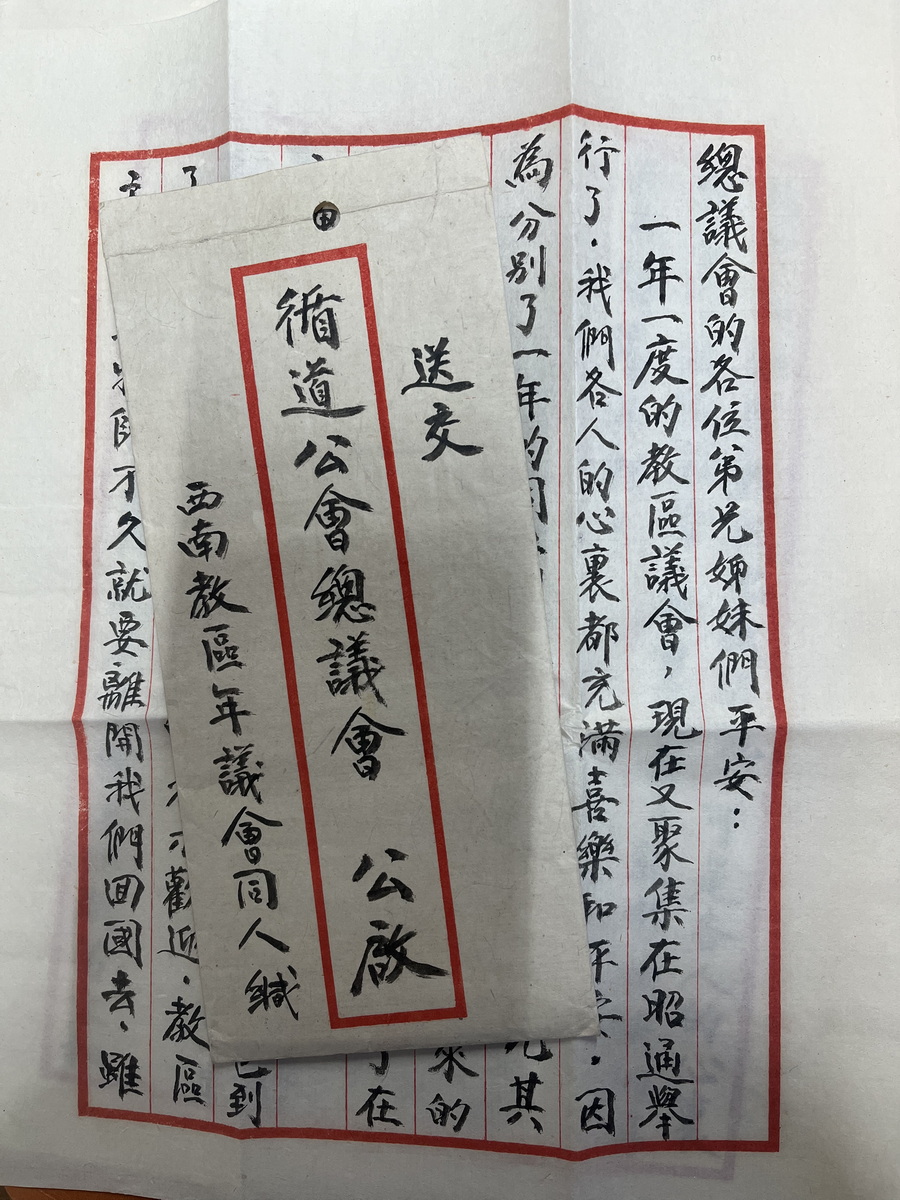 總議會的各位弟兄姊妹們平安：
一年一度的教區議會，現在又聚集在昭通舉
行了．我們各人的心裏都充滿喜樂和平安．因
為分別了一年的
其
來的
了在
已到
了
歡迎．教區
不久就要離開我們回國去．雖
送交
循道公會總議會 公啟
西南教區年議會同人緘